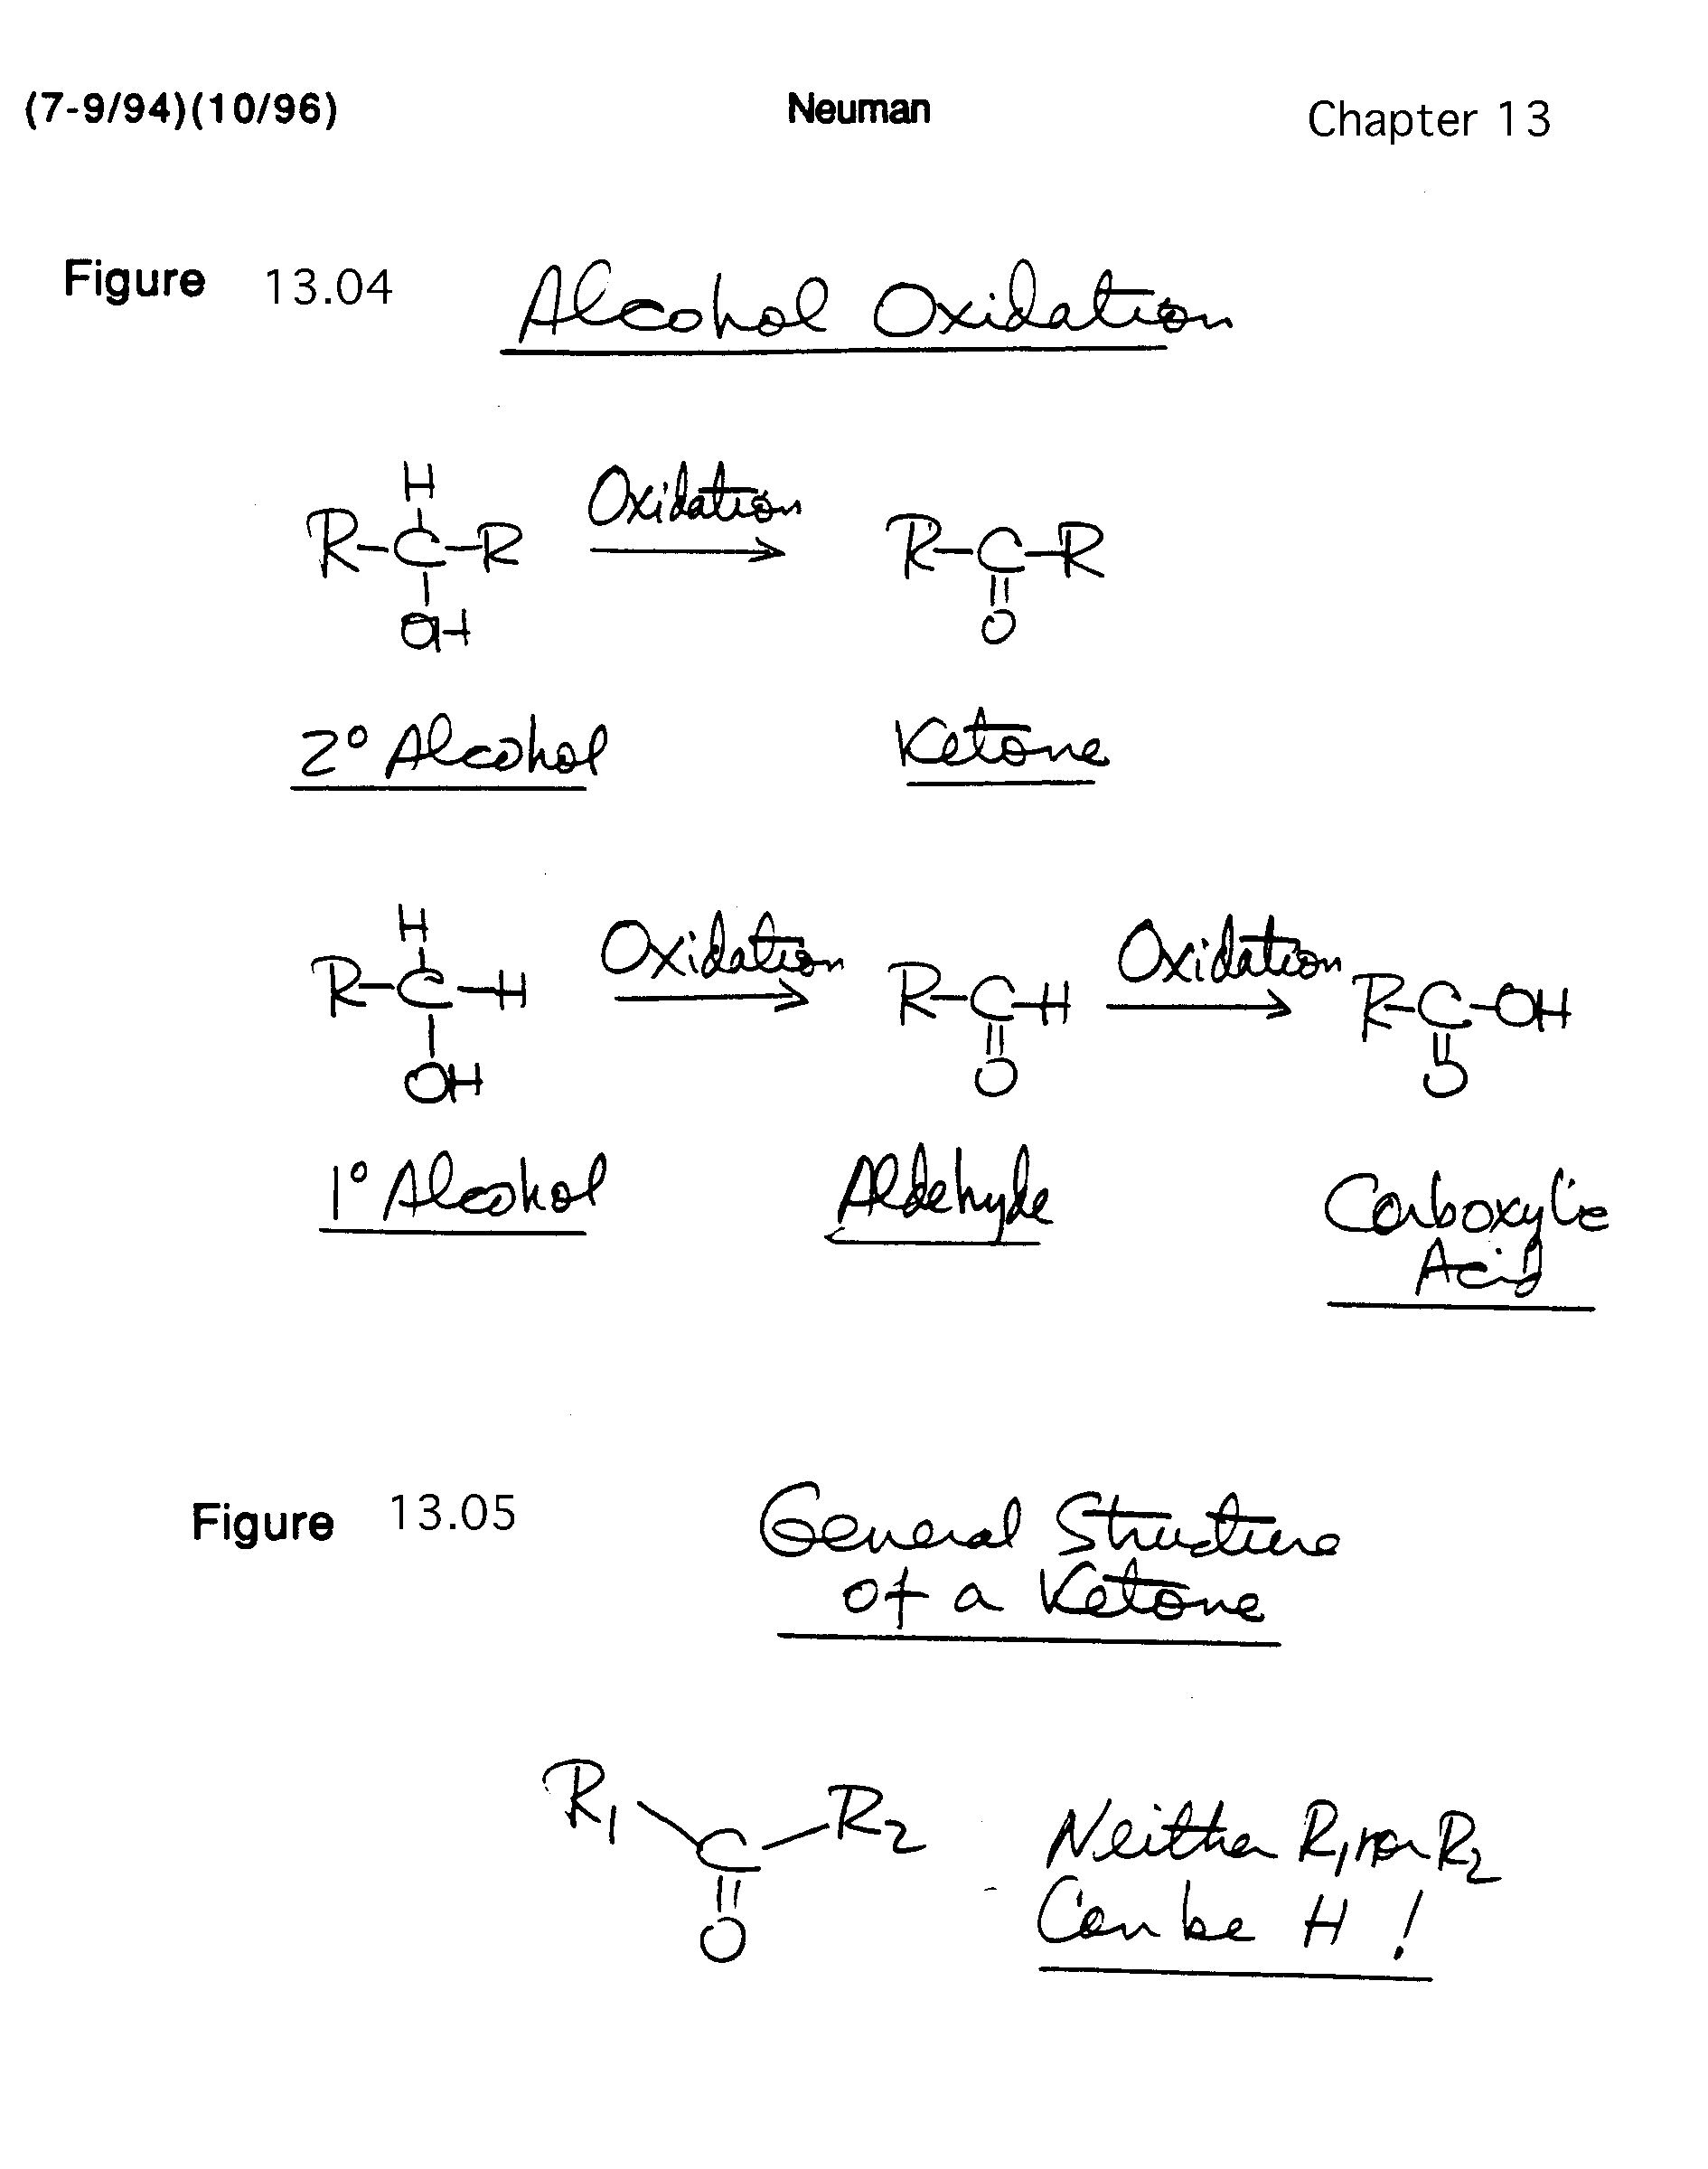 (7-9/94)(10/96) Neuman Chapter 13
Figure 13.04 Alcohol Oxidation
H
R-C-R Oxidation R-C-R
OH O
2° Alcohol Ketone
H
R-C-H Oxidation R-C-H Oxidation R-C-OH
OH O O
1° Alcohol Aldehyde Carboxylic
Acid
Figure 13.05 General Structure
of a Ketone
R1 C R2 Neither R1 nor R2
O Can be H !